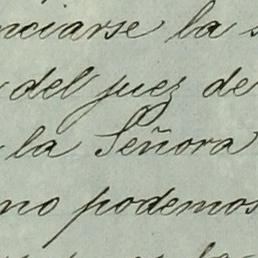 nciarse la s
del juez de
la Señora
no podemos